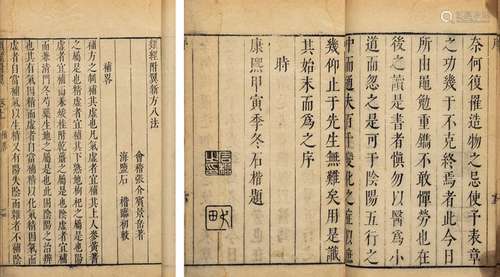 奈何復罹造物之忌使予表章
之功幾于不克終焉者此今日
所由黽勉重鐫不敢憚勞也在
後之讀是書者慎勿以醫為小
道而忽之是可于陰陽五行之
中而通夫百千變化之症
幾仰止于先生無難矣用是識
其始末而為之序
時
康熙甲寅季冬石楷題
類經附翼新方八法
會稽張介賓景岳著
海鹽石 楷臨初較
補略
補方之制補其虛也凡氣虛者宜補其上人參黃耆
之屬是也精虛者宜補其下熟地枸杞之屬是也陽
虛者宜補而兼煖桂附乾薑之屬是也陰虛者宜補
而兼清門冬芍藥生地之屬是也此固陰陽之治辨
也其有氣因精而虛者自當補精以化氣精因氣而
虛者自當補氣以生精又有陽失陰而離者不補陰